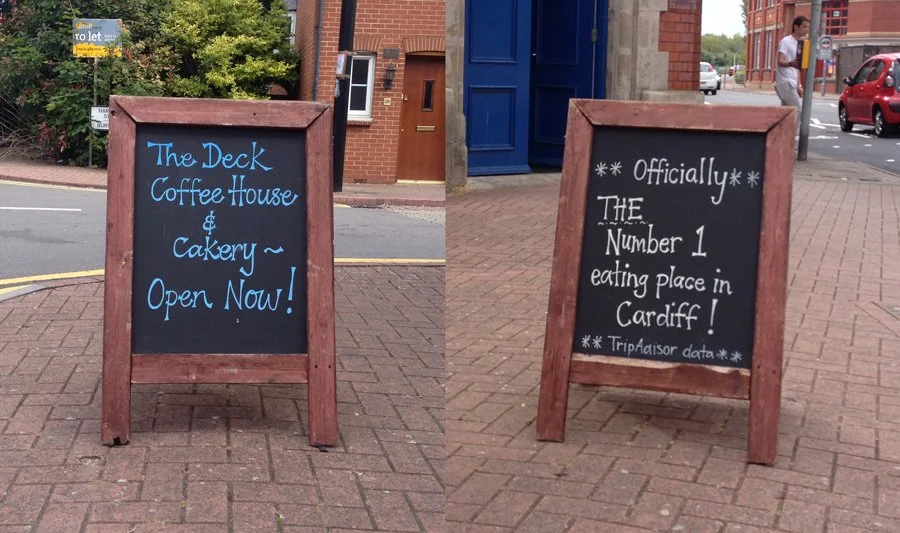 to let
The Deck
Coffee House
&
Cakery ~
Open Now!
** Officially **
THE
Number 1
eating place in
Cardiff!
** TripAdisor data **